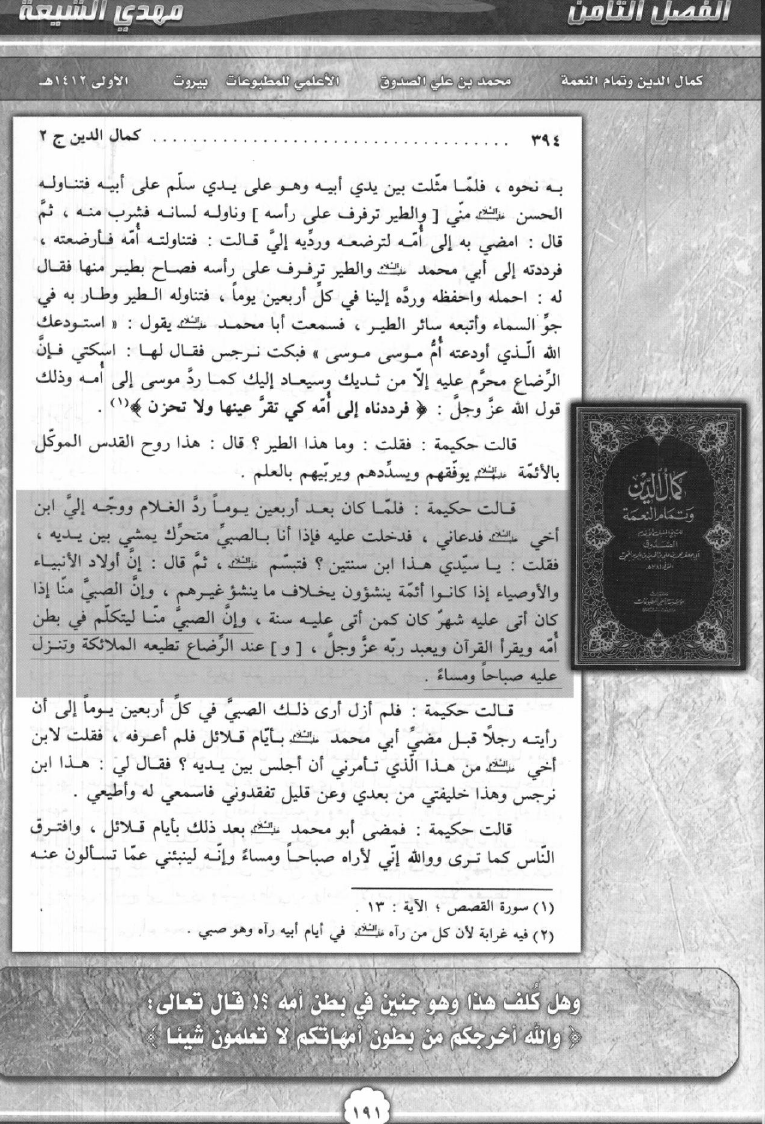 الفصل الثامن
مهدي الشيعة
كمال الدين وتمام النعمة محمد بن علي الصدوق الأعلمي للمطبوعات بيروت الأولى ١٤١٢هـ
٣٩٤ .................................... كمال الدين ج ٢
به نحوه ، فلمّا مثّلت بين يدي أبيه وهو على يدي سلّم على أبيه فتناوله
الحسن عليه السلام منّي [ والطير ترفرف على رأسه ] وناوله لسانه فشرب منه ، ثمَّ
قال : امضي به إلى أُمّه لترضعه وردِّيه إليَّ قالت : فتناولته أُمّه فأرضعته ،
فرددته إلى أبي محمد عليه السلام والطير ترفرف على رأسه فصاح بطير منها فقال
له : احمله واحفظه وردَّه إلينا في كلِّ أربعين يوماً ، فتناوله الطير وطار به في
جوِّ السماء وأتبعه سائر الطير ، فسمعت أبا محمد عليه السلام يقول : « استودعك
الله الّذي أودعته أُمُّ موسى موسى » فبكت نرجس فقال لها : اسكتي فإنَّ
الرِّضاع محرَّم عليه إلّا من ثديك وسيعاد إليك كما ردَّ موسى إلى أُمه وذلك
قول الله عزَّ وجلَّ : ﴿ فرددناه إلى أُمّه كي تقرَّ عينها ولا تحزن ﴾(١) .
قالت حكيمة : فقلت : وما هذا الطير ؟ قال : هذا روح القدس الموكّل
بالأئمّة عليهم السلام يوفّقهم ويسدِّدهم ويربّيهم بالعلم .
قالت حكيمة : فلمّا كان بعد أربعين يوماً ردَّ الغلام ووجّه إليَّ ابن
أخي عليه السلام فدعاني ، فدخلت عليه فإذا أنا بالصبيِّ متحرِّك يمشي بين يديه ،
فقلت : يا سيّدي هذا ابن سنتين ؟ فتبسّم عليه السلام ، ثمَّ قال : إنَّ أولاد الأنبياء
والأوصياء إذا كانوا أئمّة ينشؤون بخلاف ما ينشؤ غيرهم ، وإنَّ الصبيَّ منّا إذا
كان أتى عليه شهرٌ كان كمن أتى عليه سنة ، وإنَّ الصبيَّ منّا ليتكلّم في بطن
أمّه ويقرأ القرآن ويعبد ربّه عزَّ وجلَّ ، [ و ] عند الرِّضاع تطيعه الملائكة وتنزل
عليه صباحاً ومساءً .
قالت حكيمة : فلم أزل أرى ذلك الصبيَّ في كلِّ أربعين يوماً إلى أن
رأيته رجلاً قبل مضيِّ أبي محمد عليه السلام بأيّام قلائل فلم أعرفه ، فقلت لابن
أخي عليه السلام من هذا الّذي تأمرني أن أجلس بين يديه ؟ فقال لي : هذا ابن
نرجس وهذا خليفتي من بعدي وعن قليل تفقدوني فاسمعي له وأطيعي .
قالت حكيمة : فمضى أبو محمد عليه السلام بعد ذلك بأيام قلائل ، وافترق
النّاس كما ترى ووالله إنّي لأراه صباحاً ومساءً وإنّه لينبئني عمّا تسألون عنه
(١) سورة القصص ؛ الآية : ١٣ .
(٢) فيه غرابة لأن كل من رآه عليه السلام في أيام أبيه رآه وهو صبي .
كمال الدين
وتمام النعمة
الصدوق
وهل كُلف هذا وهو جنين في بطن أمه ؟! قال تعالى:
﴿ والله أخرجكم من بطون أمهاتكم لا تعلمون شيئا ﴾
١٩١